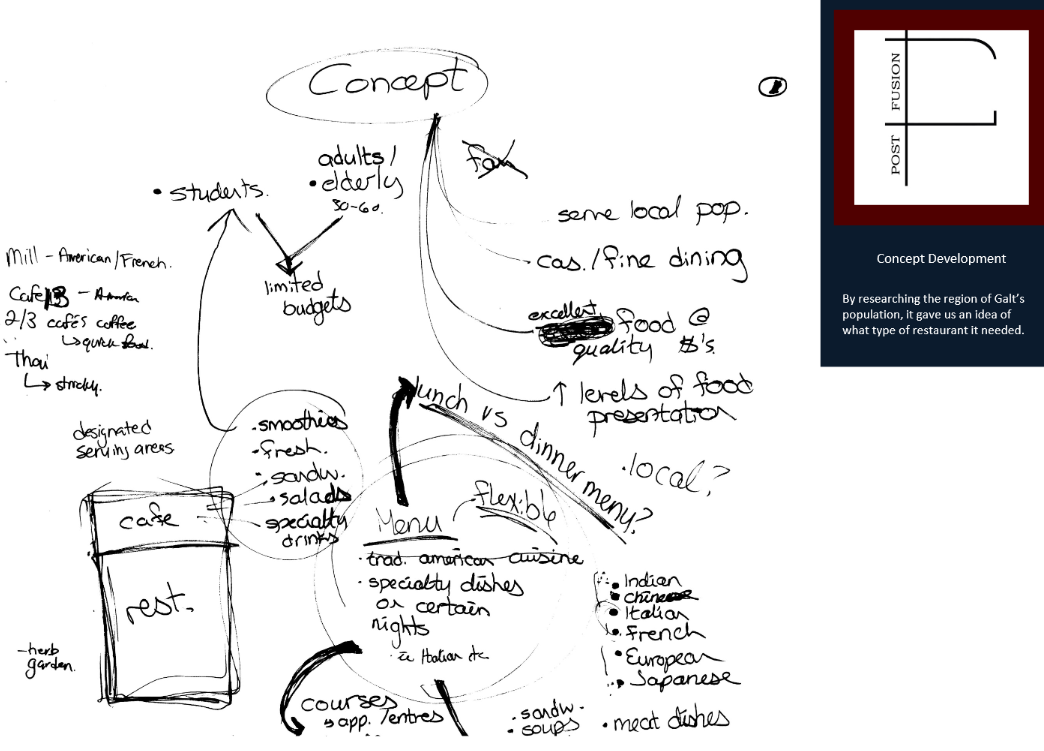 Concept
1
fam
adults/
• elderly
30-60.
• students.
limited
budgets
serve local pop.
cas./fine dining
excellent
food @
quality $'s.
↑ levels of food
presentation
Mill - American/French.
Cafe 13 -
2/3 cafés coffee
↳ quick food.
Thai
↳ strictly.
designated
serving areas
• smoothies
• fresh.
• sandw.
• salads
• specialty
drinks
cafe
rest.
-herb
garden.
lunch vs dinner menu?
• local?
flexible
Menu
• trad. american cuisine
• specialty dishes
on certain
nights
• ie Italian etc
• Indian
• chinese
• Italian
• French
• European
• Japanese
courses
↳ app./entres
• sandw.
• soups
• meat dishes
POST FUSION
Concept Development
By researching the region of Galt's
population, it gave us an idea of
what type of restaurant it needed.